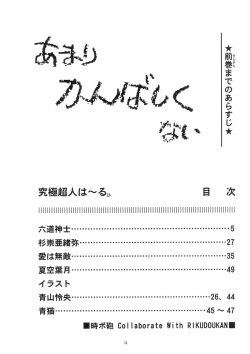 ★前巻までのあらすじ★
あまり
かんばしく
ない
究極超人は〜る。 目 次
六道神士…5
杉崇亜緒弥…27
愛は無敵…35
夏空葉月…49
イラスト
青山怜央…26、44
青猫…45〜47
■時ポ砲 Collaborate With RIKUDOUKAN■